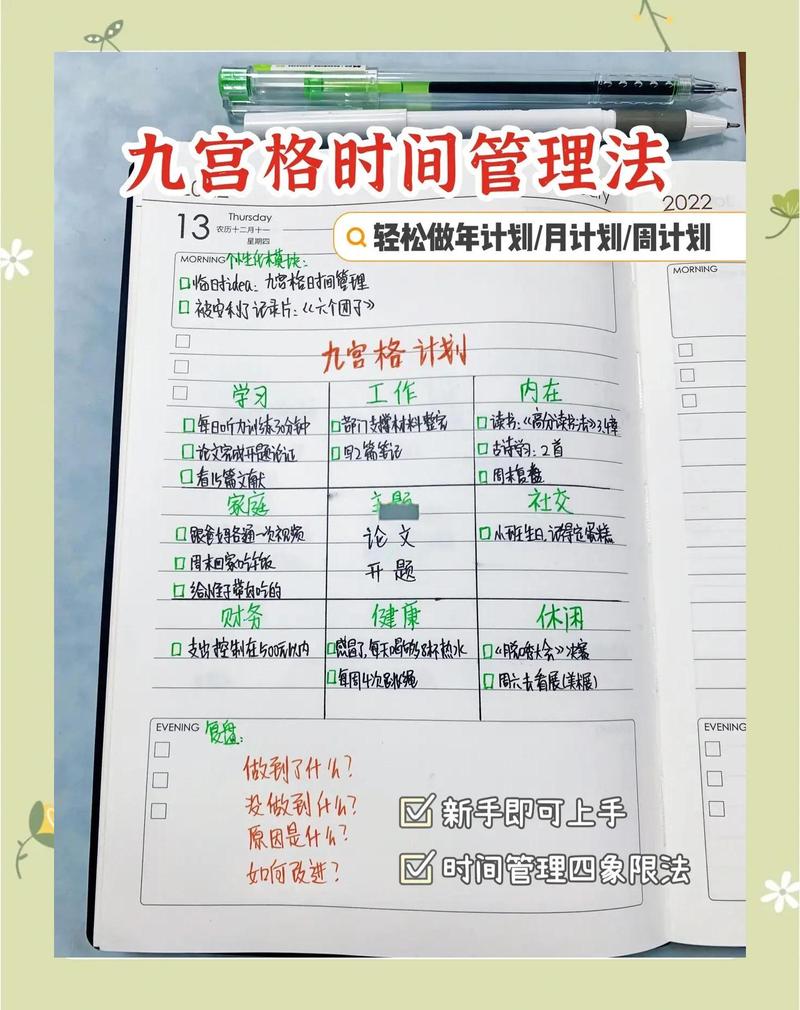 九宫格时间管理法
轻松做年计划/月计划/周计划
2022
13
Thursday
农历十二月十一
星期四
MORNING
个性化模块:
临时idea:九宫格时间管理
被安利了记录片:《六个团子》
九宫格计划
学习
每日听力训练30分钟
论文完成开题论证
看15篇文献
工作
部门支撑材料整完
写2篇笔记
内在
读书:《高分读书法》3,4章
古诗学习:2首
周末复盘
家庭
跟爸妈各通一次视频
周末回家吃午饭
主题
论文
开题
社交
小班生日,记得定蛋糕
财务
支出控制在500元以内
健康
感冒了,每天喝够8杯热水
每周4次跳绳
休闲
《脱口秀大会》决赛
周六去看展(美术展)
EVENING
复盘:
做到了什么?
没做到什么?
原因是什么?
如何改进?
新手即可上手
时间管理四象限法
MORNING
EVENING